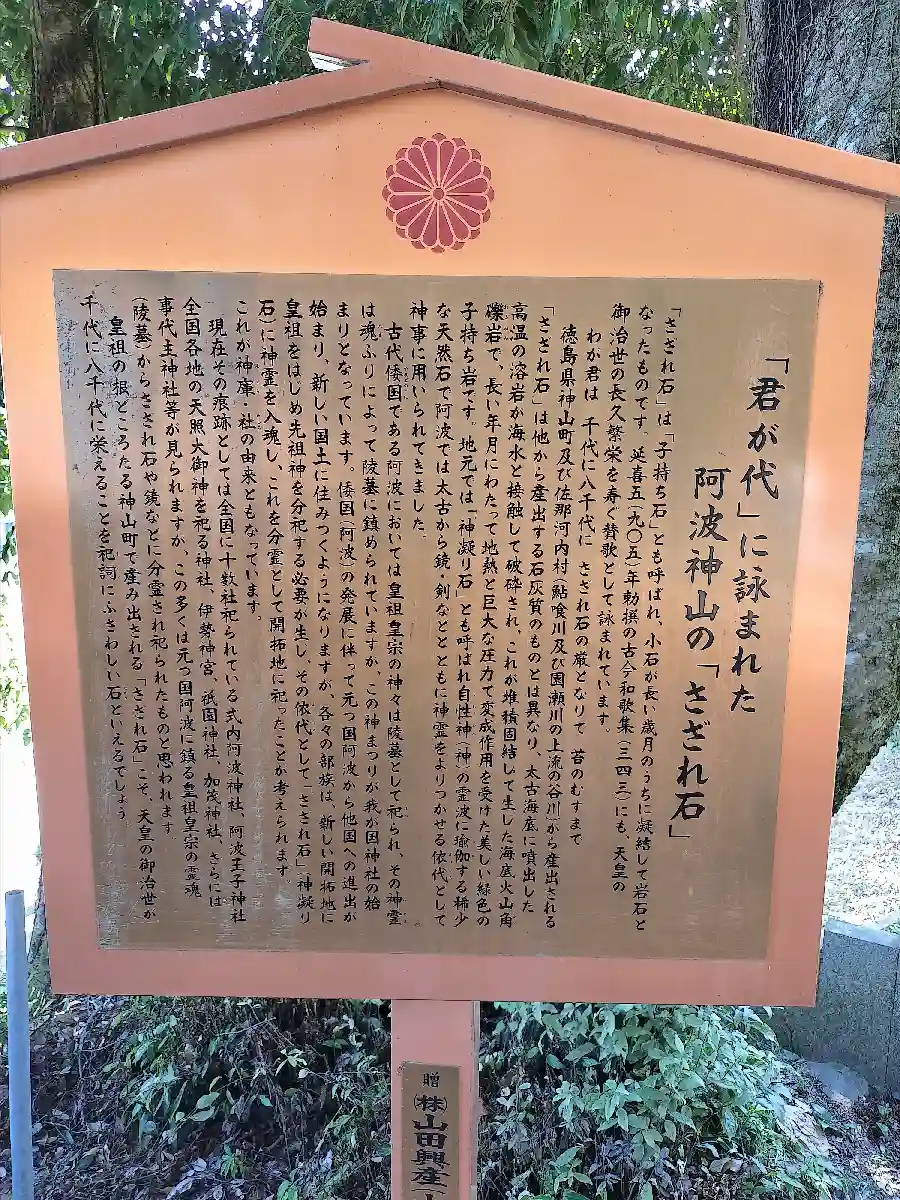 「君が代」に詠まれた
阿波神山の「さざれ石」
「さざれ石」は「子持ち石」とも呼ばれ、小石が長い歳月のうちに凝結して岩石と
なったものです。延喜五(九〇五)年勅撰の古今和歌集(三四三)にも、天皇の
御治世の長久繁栄を寿ぐ賛歌として詠まれています。
わが君は 千代に八千代に さざれ石の巌となりて 苔のむすまで
徳島県神山町及び佐那河内村(鮎喰川及び園瀬川の上流の谷川)から産出される
「さざれ石」は他から産出する石灰質のものとは異なり、太古海底に噴出した
高温の溶岩が海水と接触して破砕され、これが堆積固結して生じた海底火山角
礫岩で、長い年月にわたって地熱と巨大な圧力で変成作用を受けた美しい緑色の
子持ち岩です。地元では「神凝り石」とも呼ばれ自性神(神)の霊波に瑜伽する稀少
な天然石で阿波では太古から鏡・剣などとともに神霊をよりつかせる依代として
神事に用いられてきました。
古代倭国である阿波においては皇祖皇宗の神々は陵墓として祀られ、その神霊
は魂ふりによって陵墓に鎮められていますが、この神まつりが我が国神社の始
まりとなっています。倭国(阿波)の発展に伴って元つ国阿波から他国への進出が
始まり、新しい国土に住みつくようになりますが、各々の部族は、新しい開拓地に
皇祖をはじめ先祖神を分祀する必要が生じ、その依代として「さざれ石」(神凝り
石)に神霊を入魂し、これを分霊として開拓地に祀ったことが考えられます。
これが神庫・社の由来ともなっています。
現在その痕跡としては全国に十数社祀られている式内阿波神社、阿波王子神社
全国各地の天照大御神を祀る神社、伊勢神宮、祇園神社、加茂神社、さらには
事代主神社等が見られますが、この多くは元つ国阿波に鎮る皇祖皇宗の霊魂
(陵墓)からさざれ石や鏡などに分霊され祀られたものと思われます。
皇祖の根どころたる神山町で産み出される「さざれ石」こそ、天皇の御治世が
千代に八千代に栄えることを祀詞にふさわしい石といえるでしょう。
贈
㈱山田興産